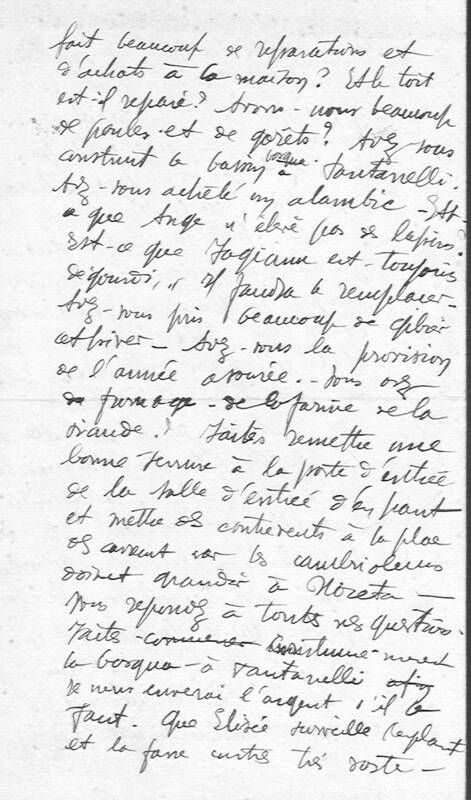 fait beaucoup de reparations et
d'achats à la maison? Et le toit
est-il reparé? Avons-nous beaucoup
de poules et de gorets? Avez-vous
construit le bassin bosqua à Fantanelli.
Avez-vous acheté un alambic - Est-
ce que Ange n'élève pas de lapins?
Est-ce que est toujours
degourdi, Il faudra le remplacer -
Avez-vous pris beaucoup de gibier
cet hiver - Avez-vous la provision
de l'année assurée. - Vous avez
du fromage - de la farine de la
viande? Faites remettre une
bonne serrure à la porte d'entrée
de la salle d'entrée d'en haut
et mettre des contrevents à la place
car les cambrioleurs
doivent à Noceta -
Vous repondez à toutes ces questions.
Faites
la bosqua - à Fantanelli afin
Je vous enverrai l'argent s'il le
faut. Que Elisée surveille
et la fasse très vaste -